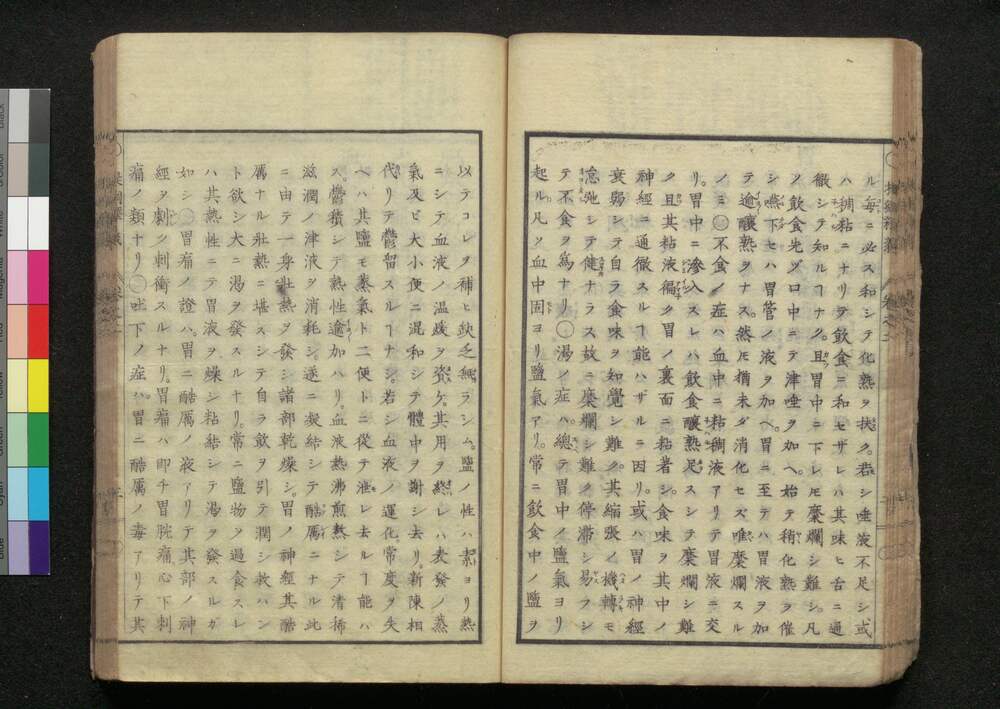 ル毎ニ必ス和シテ化熟ヲ扶ク。若シ唾液不足シ或
ハ稠粘ニナリテ飲食ニ和セザレハ其味ヒ舌ニ通
徹シテ知ルヿナク。且胃中ニ下レモ糜爛シ難シ。凡
ソ飲食先ヅ口中ニテ津唾ヲ加ヘ。始テ稍化熟ヲ催
シ。嚥下セハ胃管ノ液ヲ加ヘ。胃ニ至テハ胃液ヲ加
テ逾釀熟ヲナス。然モ猶未ダ消化セズ。唯糜爛スル
ノミ○不食ノ症ハ血中ニ粘稠液アリテ胃液ニ交
リ。胃中ニ滲入スレハ飲食釀熟足スシテ糜爛シ難
ク且其粘液徧ク胃ノ裏面ニ粘著シ。食味ヲ其中ノ
神經ニ通徹スルヿ能ハザルニ因リ。或ハ胃ノ神經
衰弱シテ自ラ食味ヲ知覺シ難ク。其縮張ノ機轉モ
怠弛シテ健ナラス故ニ糜爛シ難ク停滯シ易フシ
テ不食ヲ爲ナリ○湯ノ症ハ總テ胃中ノ鹽氣ヨリ
起ル。凡ソ血中固ヨリ鹽氣アリ。常ニ飲食中ノ鹽ヲ
以テコレヲ補ヒ缺乏無ラシム。鹽ノ性ハ素ヨリ熱
ニシテ血液ノ温煖ヲ資ケ。其用ヲ終レハ表發ノ蒸
氣及ビ大小便ニ混和シテ體中ヲ謝シ去リ。新陳相
代リテ鬱留スルヿナシ。若シ血液ノ運化常度ヲ失
ヘハ其鹽モ蒸氣ト二便トニ從テ泄レ去ルヿ能ハ
ス。鬱積シテ熱性逾加ハリ。血液熱沸煎熬シテ清稀
滋潤ノ津液ヲ消耗シ。遂ニ凝結シテ酷厲ニナル此
ニ由テ一身壯熱ヲ發シ諸部乾燥シ。胃ノ神經其酷
厲ナル壯熱ニ堪スシテ自ラ飲ヲ引テ潤シ救ハン
ト欲シ大ニ渴ヲ發スルナリ。常ニ鹽物ヲ過食スレ
ハ其熱性ニテ胃液ヲ燥シ粘結シテ渴ヲ發スルガ
如シ○胃痛ノ證ハ。胃ニ酷厲ノ液アリテ其部ノ神
經ヲ劇ク刺衝スルナリ。胃痛ハ即チ胃脘痛心下刺
痛ノ類ナリ○吐下ノ症ハ。胃ニ酷厲ノ毒アリテ其